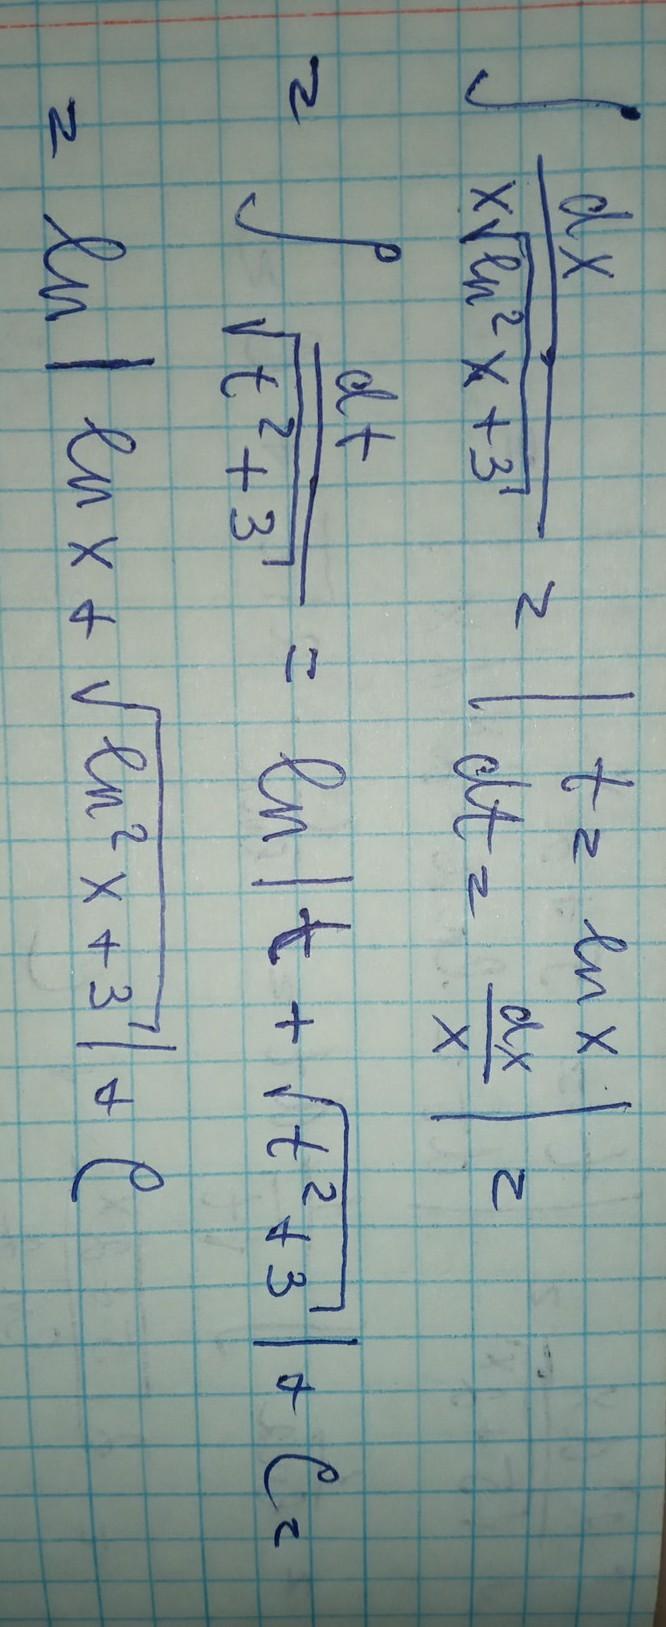 ∫ dx / (x√(ln² x + 3)) = | t = ln x
dt = dx/x | =
= ∫ dt / √(t² + 3) = ln | t + √(t² + 3) | + C =
= ln | ln x + √(ln² x + 3) | + C